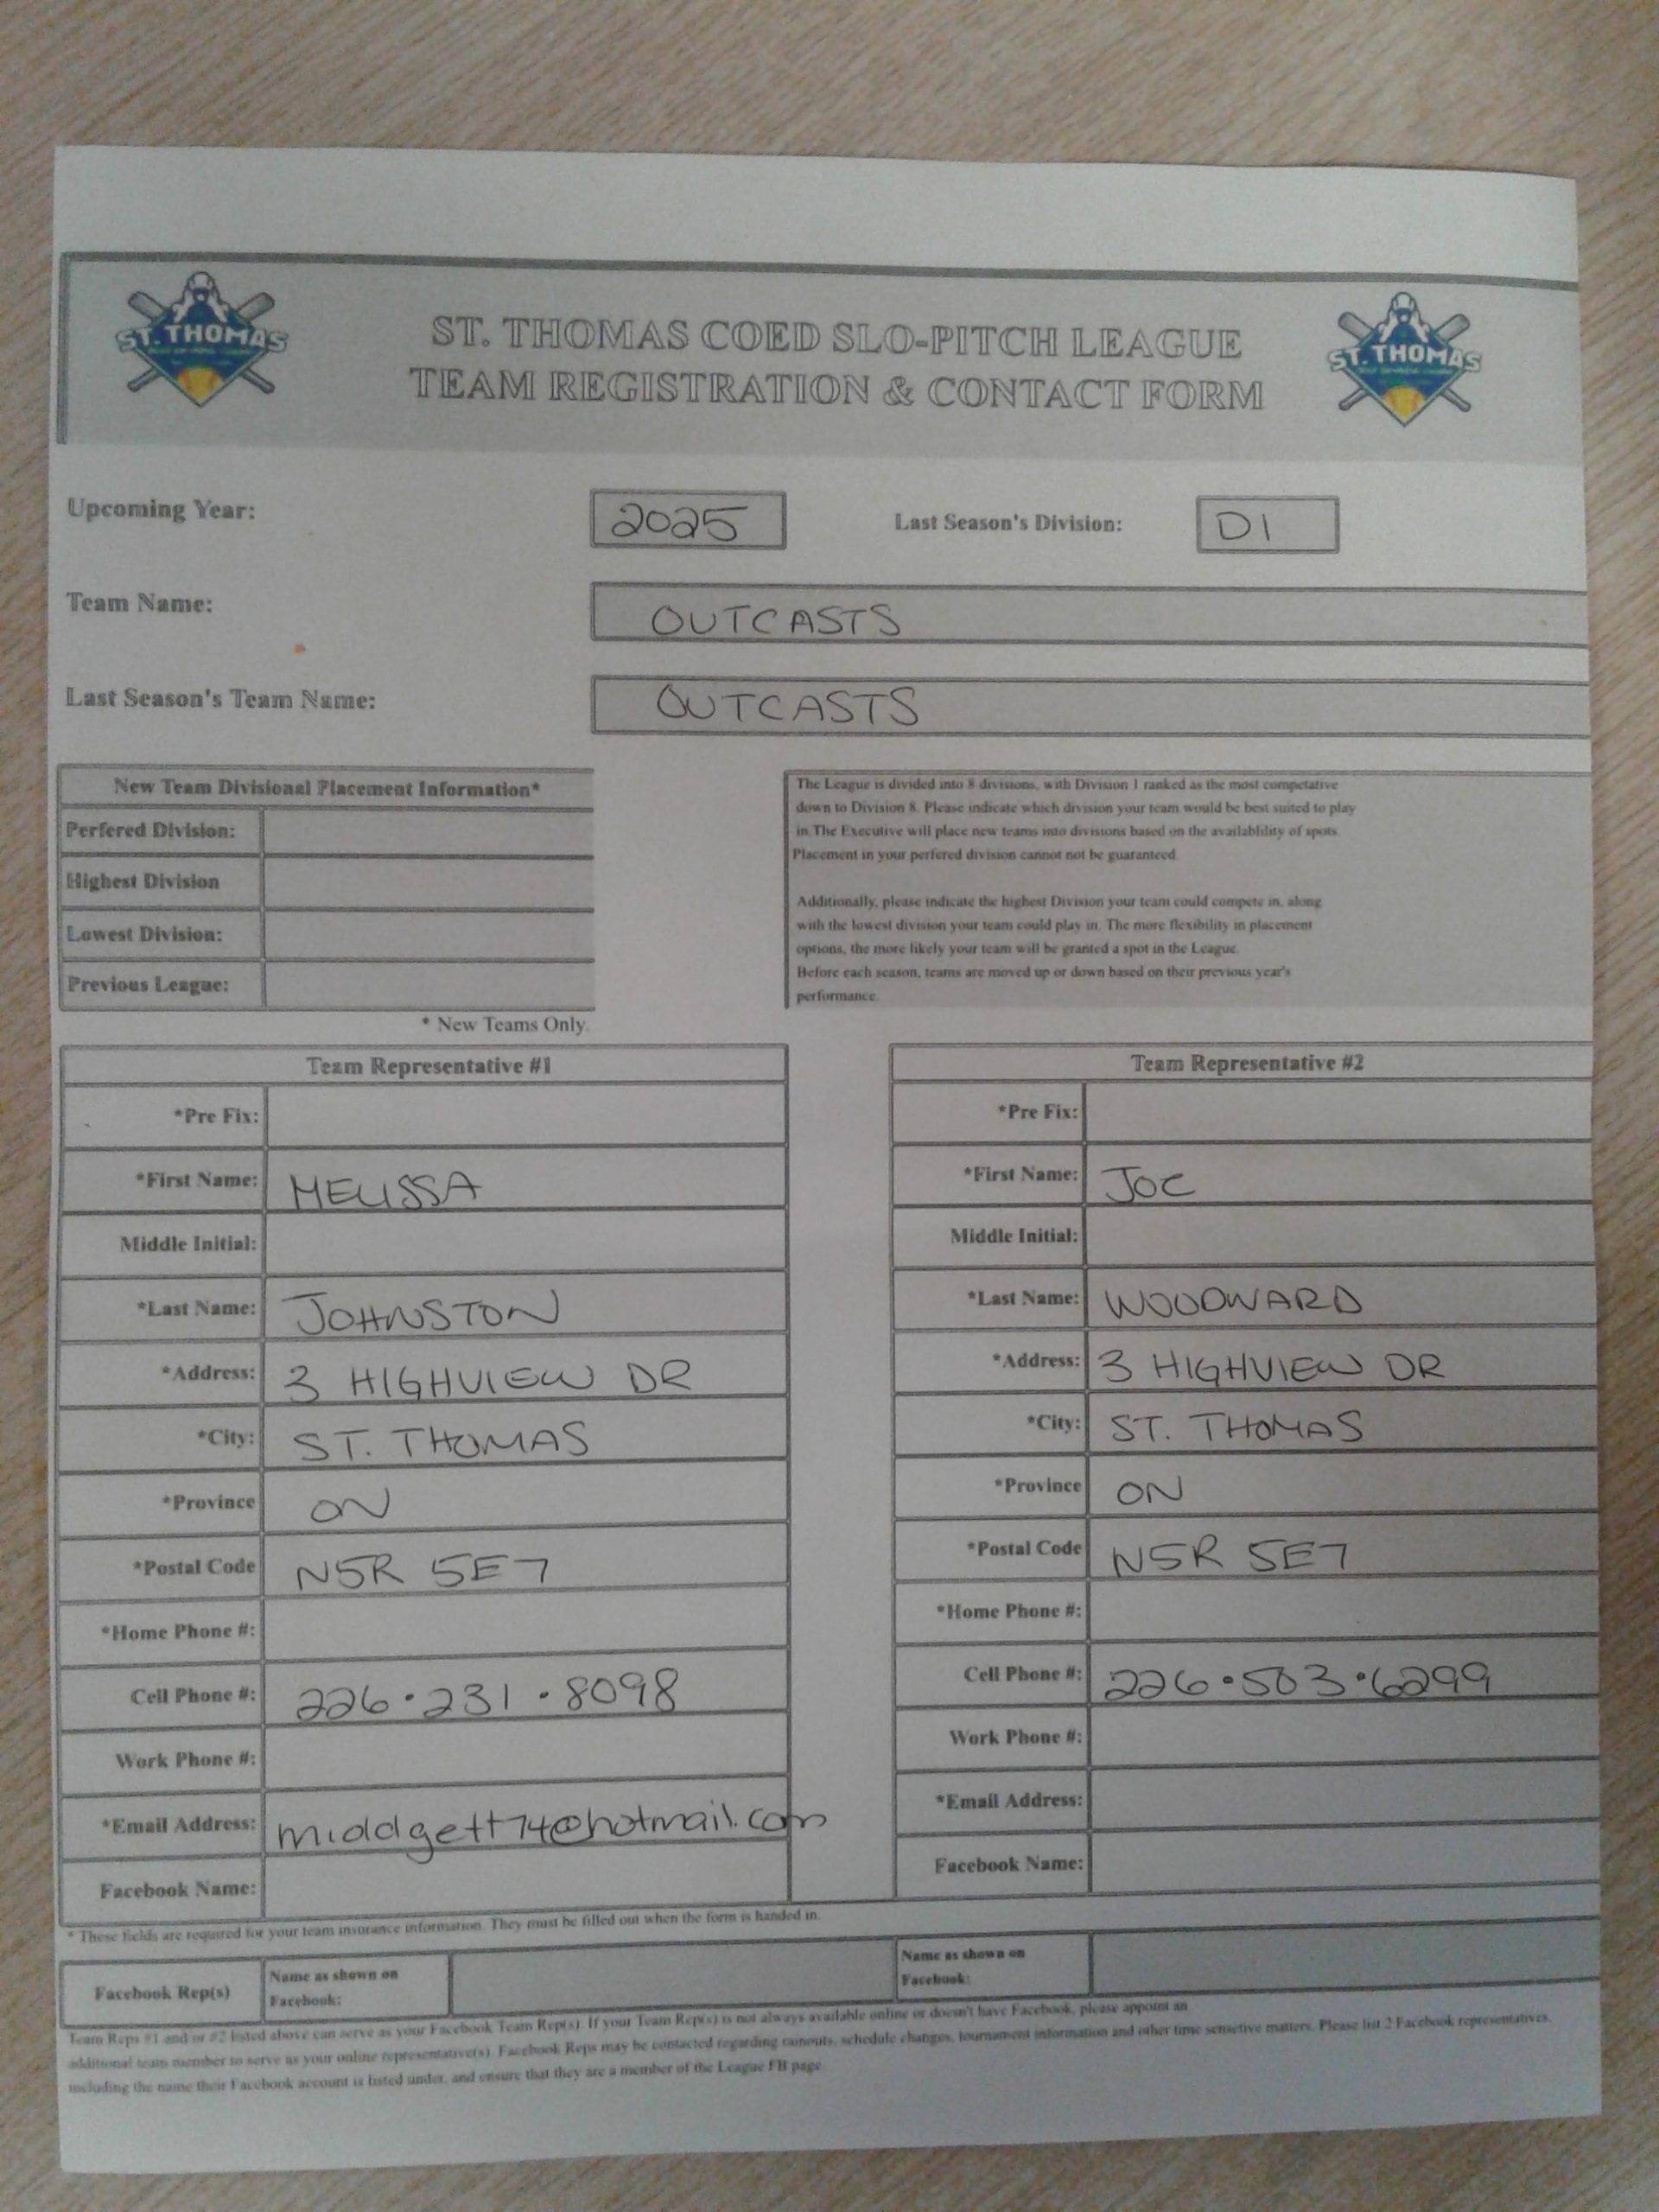 ST. THOMAS
ST. THOMAS COED SLO-PITCH LEAGUE
TEAM REGISTRATION & CONTACT FORM
ST. THOMAS
Upcoming Year: 2025 Last Season's Division: D1
Team Name: OUTCASTS
Last Season's Team Name: OUTCASTS
New Team Divisional Placement Information*
Perfered Division:
Highest Division
Lowest Division:
Previous League:
* New Teams Only.
The League is divided into 8 divisions, with Division 1 ranked as the most competative
down to Division 8. Please indicate which division your team would be best suited to play
in.The Executive will place new teams into divisions based on the availablility of spots.
Placement in your perfered division cannot not be guaranteed.
Additionally, please indicate the highest Division your team could compete in, along
with the lowest division your team could play in. The more flexibility in placement
options, the more likely your team will be granted a spot in the League.
Before each season, teams are moved up or down based on their previous year's
performance.
Team Representative #1
*Pre Fix:
*First Name: MELISSA
Middle Initial:
*Last Name: JOHNSTON
*Address: 3 HIGHVIEW DR
*City: ST. THOMAS
*Province ON
*Postal Code N5R 5E7
*Home Phone #:
Cell Phone #: 226·231·8098
Work Phone #:
*Email Address: middgett74@hotmail.com
Facebook Name:
Team Representative #2
*Pre Fix:
*First Name: JOE
Middle Initial:
*Last Name: WOODWARD
*Address: 3 HIGHVIEW DR
*City: ST. THOMAS
*Province ON
*Postal Code N5R 5E7
*Home Phone #:
Cell Phone #: 226·503·6299
Work Phone #:
*Email Address:
Facebook Name:
* These fields are required for your team insurance information. They must be filled out when the form is handed in.
Facebook Rep(s)
Name as shown on
Facebook:
Name as shown on
Facebook:
Team Reps #1 and or #2 listed above can serve as your Facebook Team Rep(s). If your Team Rep(s) is not always available online or doesn't have Facebook, please appoint an
additional team member to serve as your online representative(s). Facebook Reps may be contacted regarding rainouts, schedule changes, tournament information and other time sensetive matters. Please list 2 Facebook representatives,
including the name their Facebook account is listed under, and ensure that they are a member of the League FB page.